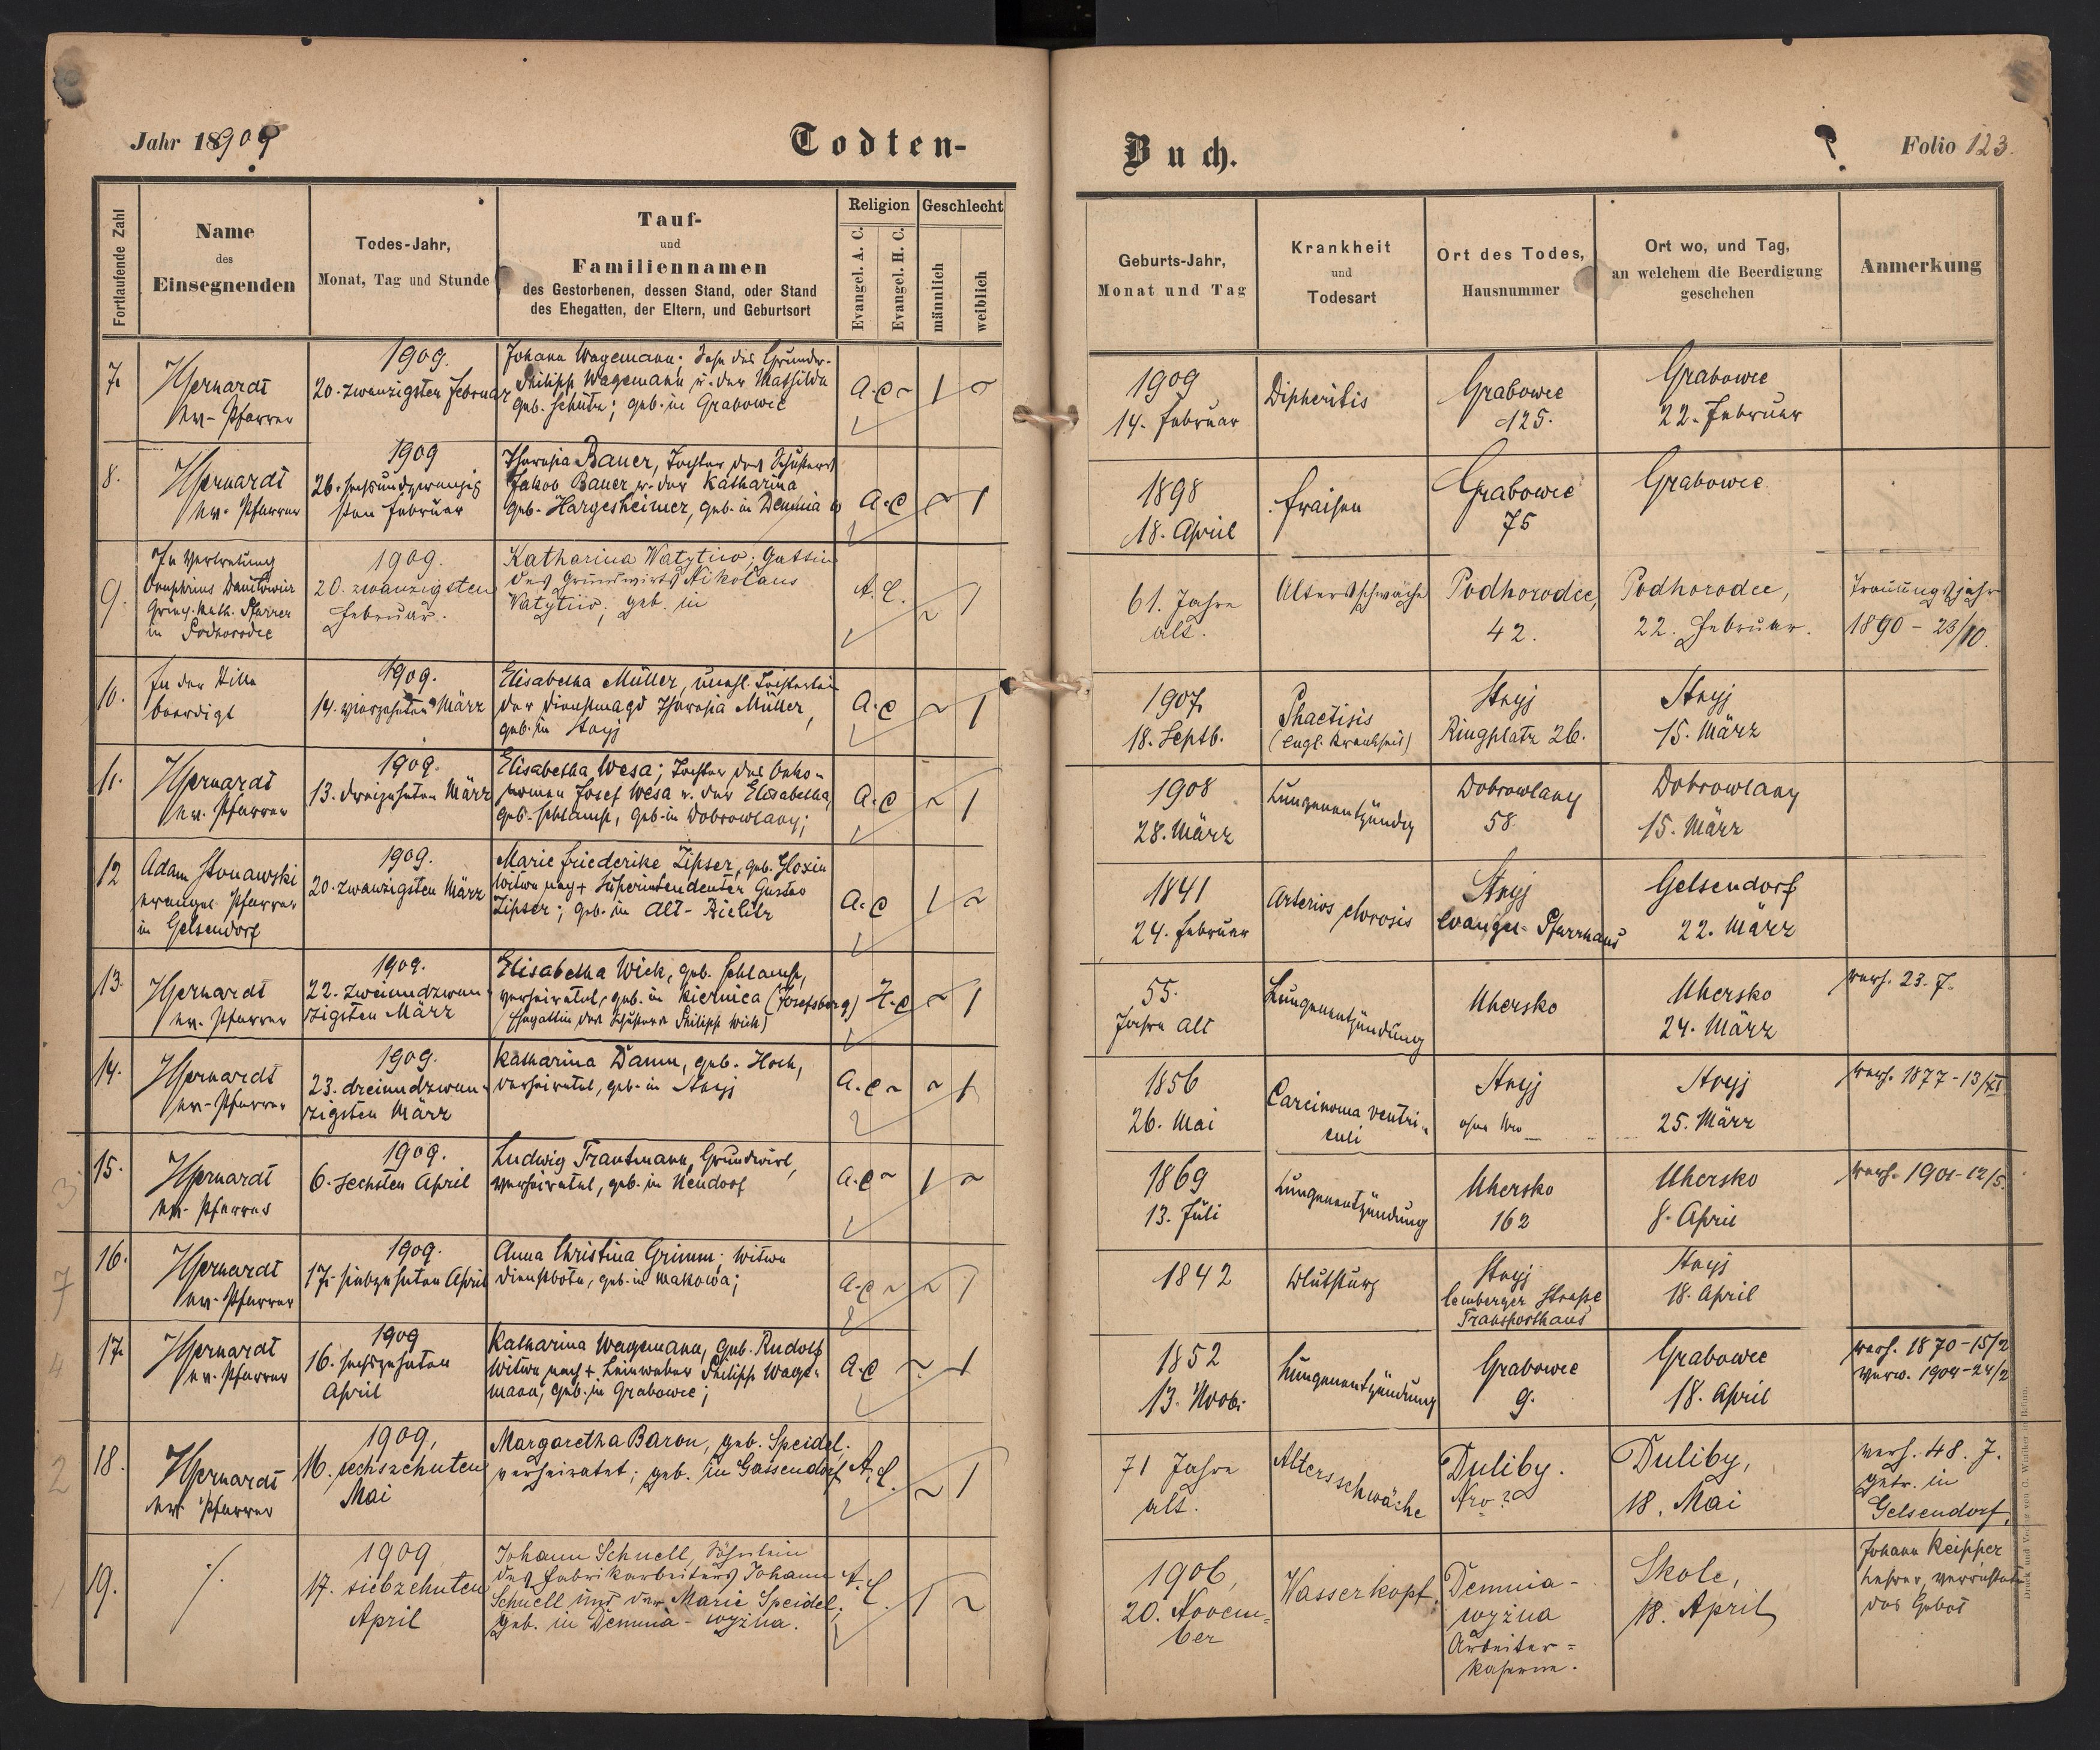 Jahr 18909
Todten-
Buch.
Folio 123.
Fortlaufende Zahl
Name
des
Einsegnenden
Todes-Jahr,
Monat, Tag und Stunde
Tauf-
und
Familiennamen
des Gestorbenen, dessen Stand, oder Stand
des Ehegatten, der Eltern, und Geburtsort
Religion
Evangel. A. C.
Evangel. H. C.
Geschlecht
männlich
weiblich
Geburts-Jahr,
Monat und Tag
Krankheit
und
Todesart
Ort des Todes,
Hausnummer
Ort wo, und Tag,
an welchem die Beerdigung
geschehen
Anmerkung
7.
ev. Pfarrer
1909.
20. zwanzigsten Februar
Johann Wagemann; Sohn des Grundw.
Philipp Wagemann u. der Mathilde
geb. Schütz; geb. in Grabowce
A.C ~ 1 ~
1909
14. Februar
Dipheritis
Grabowce
125.
Grabowce
22. Februar
8.
ev. Pfarrer
1909
26. sechsundzwanzig
sten Februar
Theresia Bauer, Tochter des Schusters
Jakob Bauer u. der Katharina
geb. Hargesheimer, geb. in Demnia w
A.C ~ 1
1898
18. April
Fraisen
Grabowce
75
Grabowce
9.
In Vertretung
Griech. kath. Pfarrer
in Podhorodce
1909.
20. zwanzigsten
Februar.
Katharina Watytiw; Gattin
des Grundwirts Nikolaus
Watytiw; geb. in
A.C. ~ 1
61. Jahre
alt.
Altersschwäche
Podhorodce,
42.
Podhorodce,
22. Februar.
Trauungsjahr
1890 - 23/10.
10.
In der Stille
beerdigt
1909.
14. vierzehnten März
Elisabetha Müller, unehl. Töchterlein
der Dienstmagd Theresia Müller,
geb. in Stryj
A.C ~ 1
1907
18. Septb.
Phactisis
(engl. Krankheit)
Stryj
Ringplatz 26.
Stryj
15. März
11.
ev. Pfarrer
1909.
13. dreizehnten März
Elisabetha Wesa; Tochter des Oeko-
nomen Josef Wesa u. der Elisabetha,
geb. Schlamp, geb. in Dobrowlany;
A.C ~ 1
1908
28. März
Lungenentzündg
Dobrowlany
58
Dobrowlany
15. März
12
Adam Stonawski
evangel. Pfarrer
in Gelsendorf
1909.
20. zwanzigsten März
Marie Friederike Zipser, geb. Gloxin
Witwe nach + Superintendenten Gustav
Zipser; geb. in Alt-Bielitz
A.C 1 ~
1841
24. Februar
Arterios clorosis
Stryj
evangel. Pfarrhaus
Gelsendorf
22. März
13.
ev. Pfarrer
1909.
22. zweiundzwan-
zigsten März
Elisabetha Wick, geb. Schlamp,
verheiratet, geb. in Kiernica (Josefsberg)
(Ehegattin des Schusters Philipp Wick)
H.C ~ 1
55.
Jahre alt
Lungenentzündung
Uhersko
Uhersko
24. März
verh. 23. J.
14.
ev. Pfarrer
1909.
23. dreiundzwan-
zigsten März
Katharina Damm, geb. Hoch,
verheiratet, geb. in Stryj
A.C ~ ~ 1
1856
26. Mai
Carcinoma ventri-
culi
Stryj
ohne Nro
Stryj
25. März
verh. 1877 - 13/XI
15.
ev. Pfarrer
1909.
6. sechsten April
Ludwig Trautmann, Grundwirt,
verheiratet, geb. in Neudorf
A.C ~ 1 ~
1869
13. Juli
Lungenentzündung
Uhersko
162
Uhersko
8. April
verh. 1901 - 12/5.
16.
ev. Pfarrer
1909.
17. siebzehnten April
Anna Christina Grimm; Witwe
Dienstbote, geb. in Makowa;
A.C ~ ~ 1
1842
Blutsturz
Stryj
Lemberger Strasse
Transporthaus
Stryj
18. April
17.
ev. Pfarrer
1909
16. sechszehnten
April
Katharina Wagemann, geb. Rudolf
Witwe nach + Leinweber Philipp Wage-
mann, geb. in Grabowce;
A.C ~ 1
1852
13. Novb.
Lungenentzündung
Grabowce
9.
Grabowce
18. April
verh. 1870 - 15/2
verw. 1904 - 24/2
18.
ev. Pfarrer
1909,
16. sechszehnten
Mai
Margaretha Baron, geb. Speidel.
verheiratet; geb. in Gassendorf
A.C. ~ 1
71 Jahre
alt.
Altersschwäche
Duliby.
Nro ?
Duliby,
18. Mai
verh. 48. J.
getr. in
Gelsendorf.
19.
./.
1909
17. siebzehnten
April
Johann Schnell, Söhnlein
des Fabrikarbeiters Johann
Schnell und der Marie Speidel.
geb. in Demnia-wyżna.
A.C. 1 ~
1906,
20. Novem-
ber
Wasserkopf.
Demnia-
wyżna
Arbeiter-
kaserne.
Skole,
18. April
Johann Keipper
Lehrer, verrichtete
das Gebet
3
7
4
2
1
Druck und Verlag von C. Winiker in Brünn.